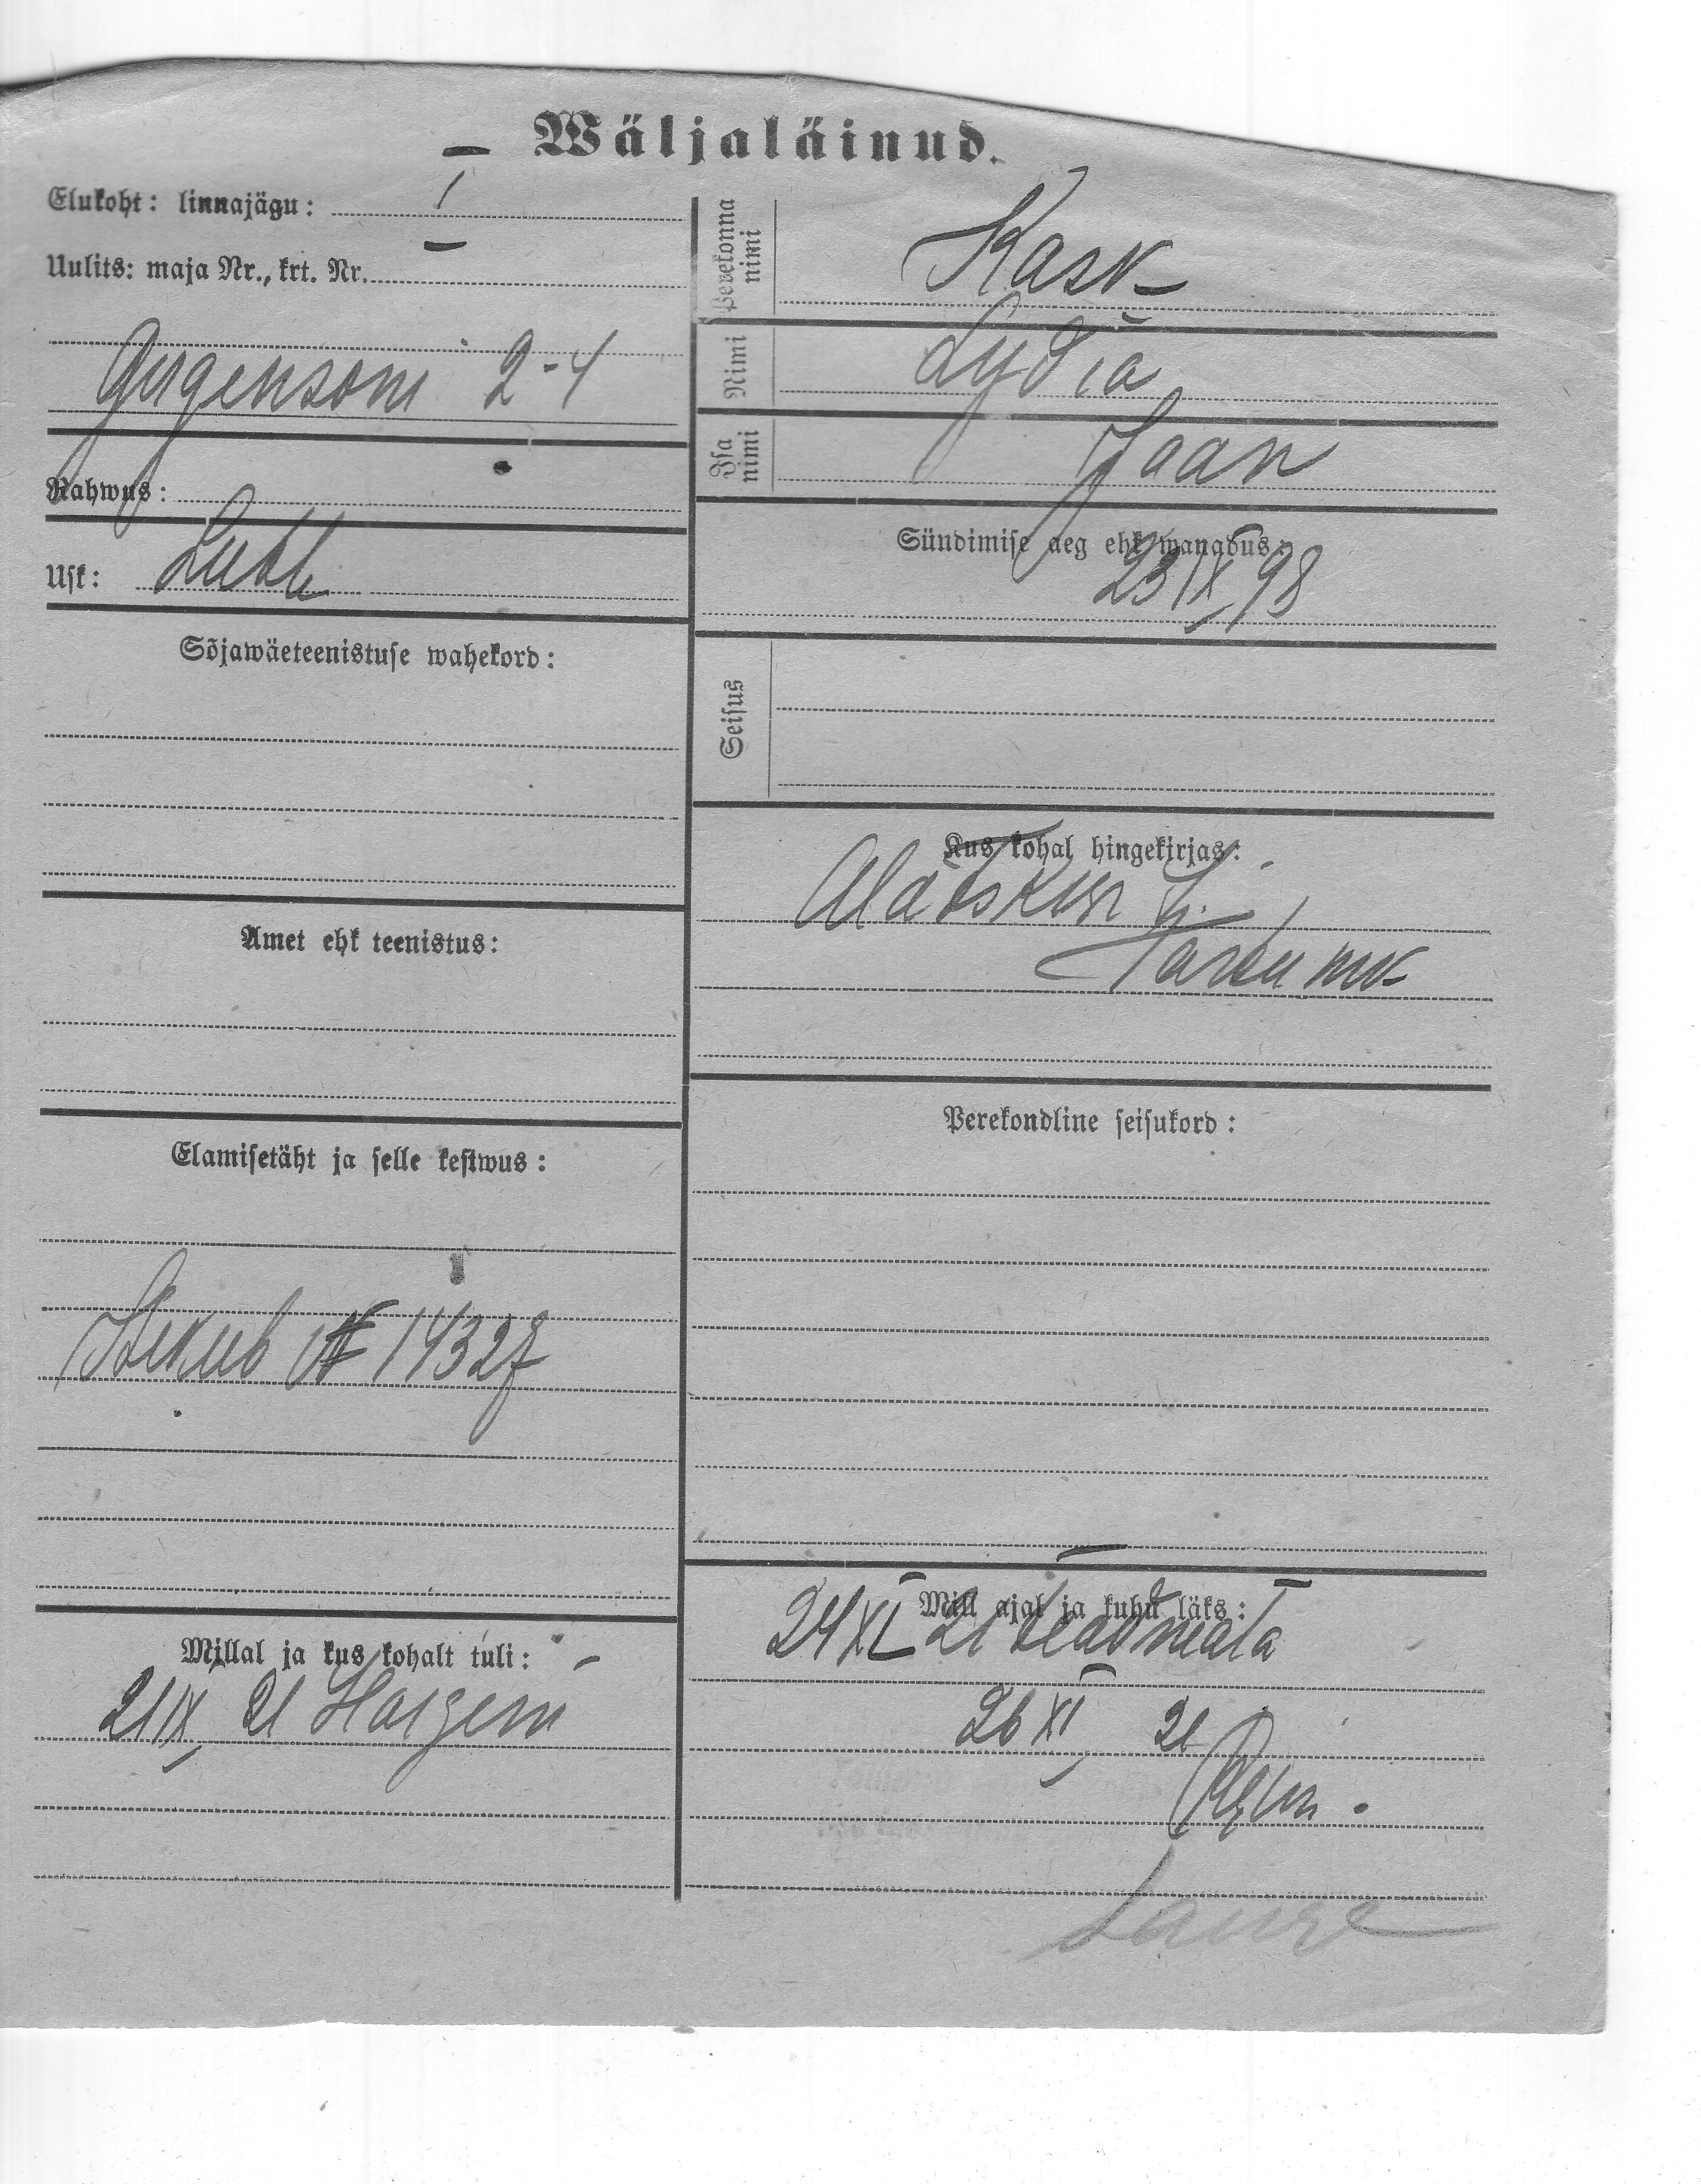 Wäljaläinud.
Elukoht: linnajägu: I
Uulits: maja Nr., krt. Nr.
Jürgensoni 2-4
Rahwus:
Usk: Luth
Sõjawäeteenistuse wahekord:
Amet ehk teenistus:
Elamisetäht ja selle kestwus:
№ 14327
Millal ja kus kohalt tuli:
21 IX 21
Perekonna nimi
Kask
Nimi
Lydia
Isa nimi
Jaan
Sündimise aeg ehk wanadus:
23 IX 98
Seisus
Kus kohal hingekirjas:
Alatskiwi
Tartu mk
Perekondline seisukord:
Mill ajal ja kuhu läks:
24 XI 21 teadmata
26 XI 21